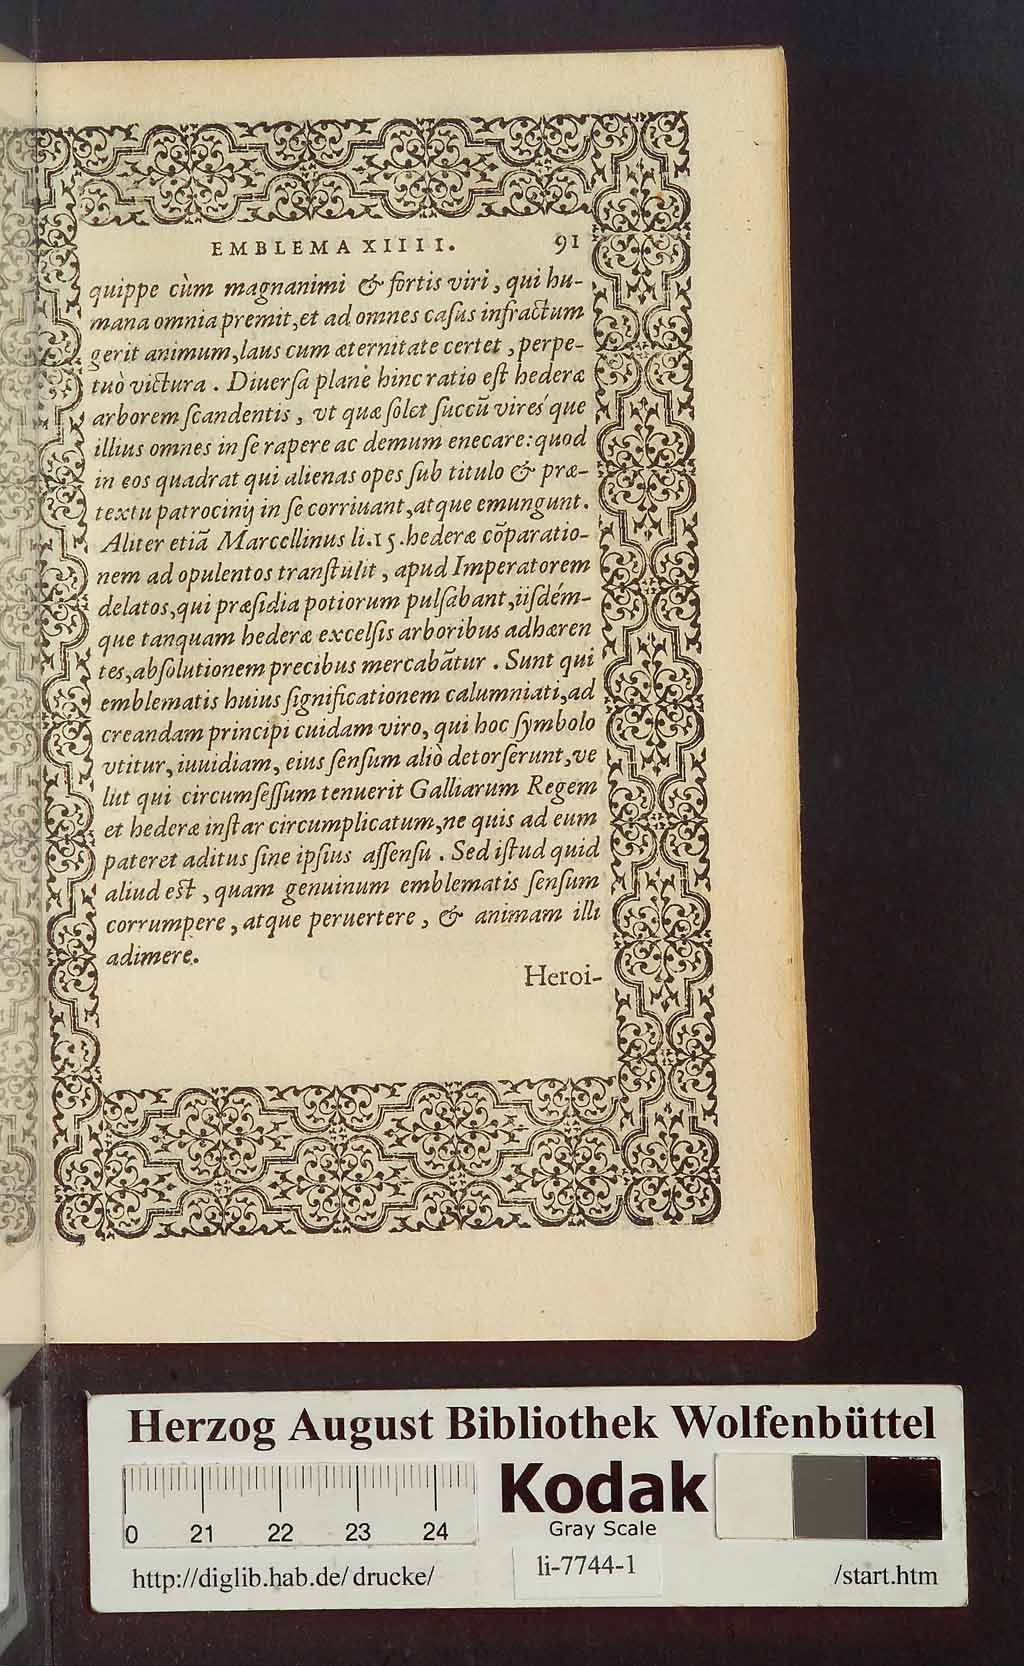 EMBLEMA XIIII. 91
quippe cùm magnanimi & fortis viri, qui hu-
mana omnia premit, et ad omnes caſus infractum
gerit animum, laus cum æternitate certet, perpe-
tuò victura. Diuerſa planè hinc ratio eſt hederæ
arborem ſcandentis, vt quæ ſolet ſuccū vireśque
illius omnes in ſe rapere ac demum enecare: quod
in eos quadrat qui alienas opes ſub titulo & præ-
textu patrocinij in ſe corriuant, atque emungunt.
Aliter etiā Marcellinus li.15. hederæ cōparatio-
nem ad opulentos tranſtulit, apud Imperatorem
delatos, qui præſidia potiorum pulſabant, iiſdém-
que tanquam hederæ excelſis arboribus adhæren
tes, abſolutionem precibus mercabātur. Sunt qui
emblematis huius ſignificationem calumniati, ad
creandam principi cuidam viro, qui hoc ſymbolo
vtitur, iuuidiam, eius ſenſum aliò detorſerunt, ve
lut qui circumſeſſum tenuerit Galliarum Regem
et hederæ inſtar circumplicatum, ne quis ad eum
pateret aditus ſine ipſius aſſenſu. Sed iſtud quid
aliud eſt, quam genuinum emblematis ſenſum
corrumpere, atque peruertere, & animam illi
adimere.
Heroi-
Herzog August Bibliothek Wolfenbüttel
0 21 22 23 24
Kodak
Gray Scale
http://diglib.hab.de/drucke/ li-7744-1 /start.htm